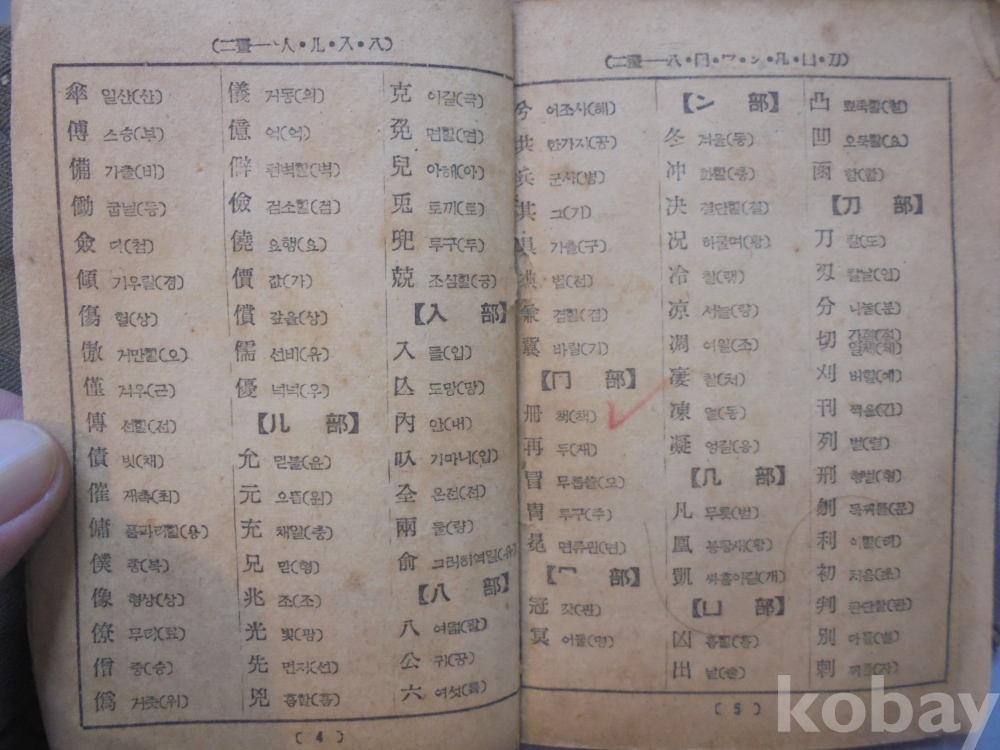 (二畫一·人·儿·入·八)
傘 일산(산)
傅 스승(부)
備 가출(비)
働 굽닐(동)
僉 다(첨)
傾 기우릴(경)
傷 헐(상)
傲 거만할(오)
僅 겨우(근)
傳 전할(전)
債 빗(채)
催 재촉(최)
傭 품파리할(용)
僕 종(복)
像 형상(상)
僚 무리(료)
僧 중(승)
僞 거줏(위)
儀 거동(의)
億 억(억)
僻 편벽할(벽)
儉 검소할(검)
僥 요행(요)
價 값(가)
償 갚을(상)
儒 선비(유)
優 넉넉(우)
【儿 部】
允 믿블(윤)
元 으뜸(원)
充 채일(충)
兄 맏(형)
兆 조(조)
光 빛(광)
先 먼저(선)
兇 흉할(흉)
克 이길(극)
免 면할(면)
兒 아해(아)
兎 토끼(토)
兜 투구(두)
兢 조심할(긍)
【入 部】
入 들(입)
亾 도망(망)
內 안(내)
叺 가마니(입)
全 온전(전)
兩 둘(량)
兪 그러히여일(유)
【八 部】
八 여덟(팔)
公 귀(공)
六 여섯(륙)
(4)
(二畫一八·冂·冖·冫·几·凵·刀)
兮 어조사(혜)
共 한가지(공)
兵 군사(병)
其 그(기)
具 가출(구)
典 법(전)
兼 겸할(겸)
冀 바랄(기)
【冂 部】
冊 책(책)
再 두(재)
冒 무릅쓸(모)
冑 투구(주)
冕 면류관(면)
【冖 部】
冠 갓(관)
冥 어둘(명)
【冫 部】
冬 겨울(동)
冲 화할(충)
决 결단할(결)
况 하물며(황)
冷 찰(랭)
凉 서늘(량)
凋 여윌(조)
凄 찰(처)
凍 얼(동)
凝 엉길(응)
【几 部】
凡 무릇(범)
凰 봉황새(황)
凱 싸홈이길(개)
【凵 部】
凶 흉할(흉)
出 날(출)
凸 뾰죽할(철)
凹 오목할(요)
函 함(함)
【刀 部】
刀 칼(도)
刃 칼날(인)
分 나눌(분)
切 간절(절) 일체(체)
刈 버힐(예)
刊 책을(간)
列 벌(렬)
刑 형벌(형)
利 이할(리)
初 처음(초)
判 판단할(판)
別 다를(별)
刺 찌를(자)
(5)
kobay